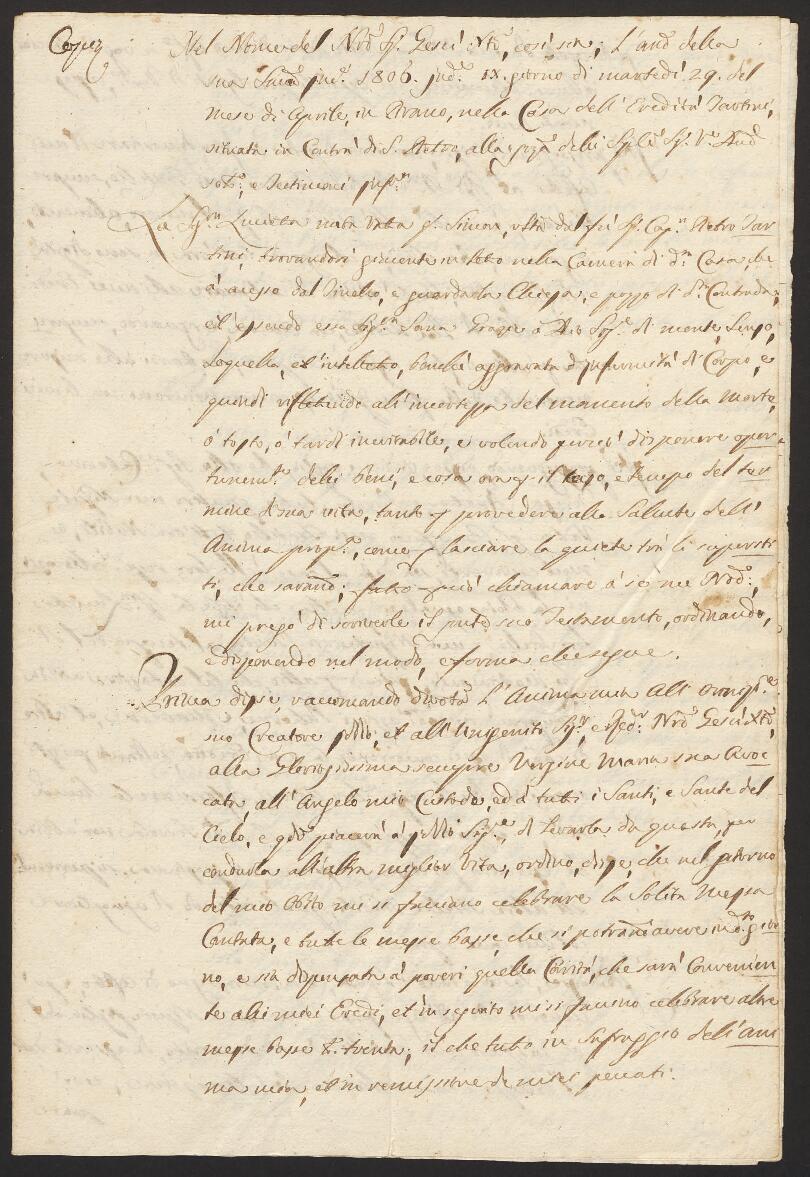 Copia
Nel Nome del Nrõ Sg. Gesú Xtõ, cosí sia; L'anõ della
sua Nativ. 1806. Indne. IX. giorno di martedí 29. del
mese di Aprile, in Pirano, nella Casa dell'Ereditá Tartini,
situata in Contrá di S. Pietro, alla
sot; e Testimonj
La Sgra Lucieta nata Vata q. Simon, del fú Sg. Capn Pietro Tar
tini, trovandosi giacente in letto nella Camera di da Casa, che
é apresso dal Tinello, e guarda la Chiesa, e pozzo di da Contrada;
et essendo essa Sigra Sana Grazie a Dio Sige di mente, Senso,
Loquella, et intelletto, benché aggravata d'infermitá di Corpo, e
quindi rifletendo all'incertezza del momento della Morte,
ó tosto, ó tardi inevitabile, e volendo perciò disponere oppor
tunemte delli beni, e cosa sua il caso, e tempo del ter
mine di sua vita, tanto p provedere alla Salute dell'
Anima propa, come p lasciare la quiete trá li supersti
ti, che sarañó; fatto perció chiamare á se me Nrõ;
mi pregó di scriverle il pñte suo Testamento, ordinando,
e disponendo nel modo, e forma che segue.
Prima disse, raccomando divota L'Anima mia All'omnipe
suo Creatore et all'Unigenito Sigr, e Redr Nrõ Gesú Xtõ,
alla Gloriosissima sempre Vergine Maria sua Avoc
cata, all'Angelo mio Custode, ed á tutti i Santi, e Sante del
Cielo, e qdõ piacerá á Sige di Levarla da questa, per
condurla all'altra miglior Vita, ordino, disse, che nel giorno
del mio Obito mi si facciano celebrare la Solita Messa
Cantata, e tutte le messe basse che si potrañó avere in dto gior
no, e sia dispensata á poveri quella Caritá, che sará Convenien
te alli miei Eredi, et in seguito mi si facino celebrare altre
messe basse trenta; il che tutto in Suffraggio dell'ani
ma mia, et in remissione de miei peccati.